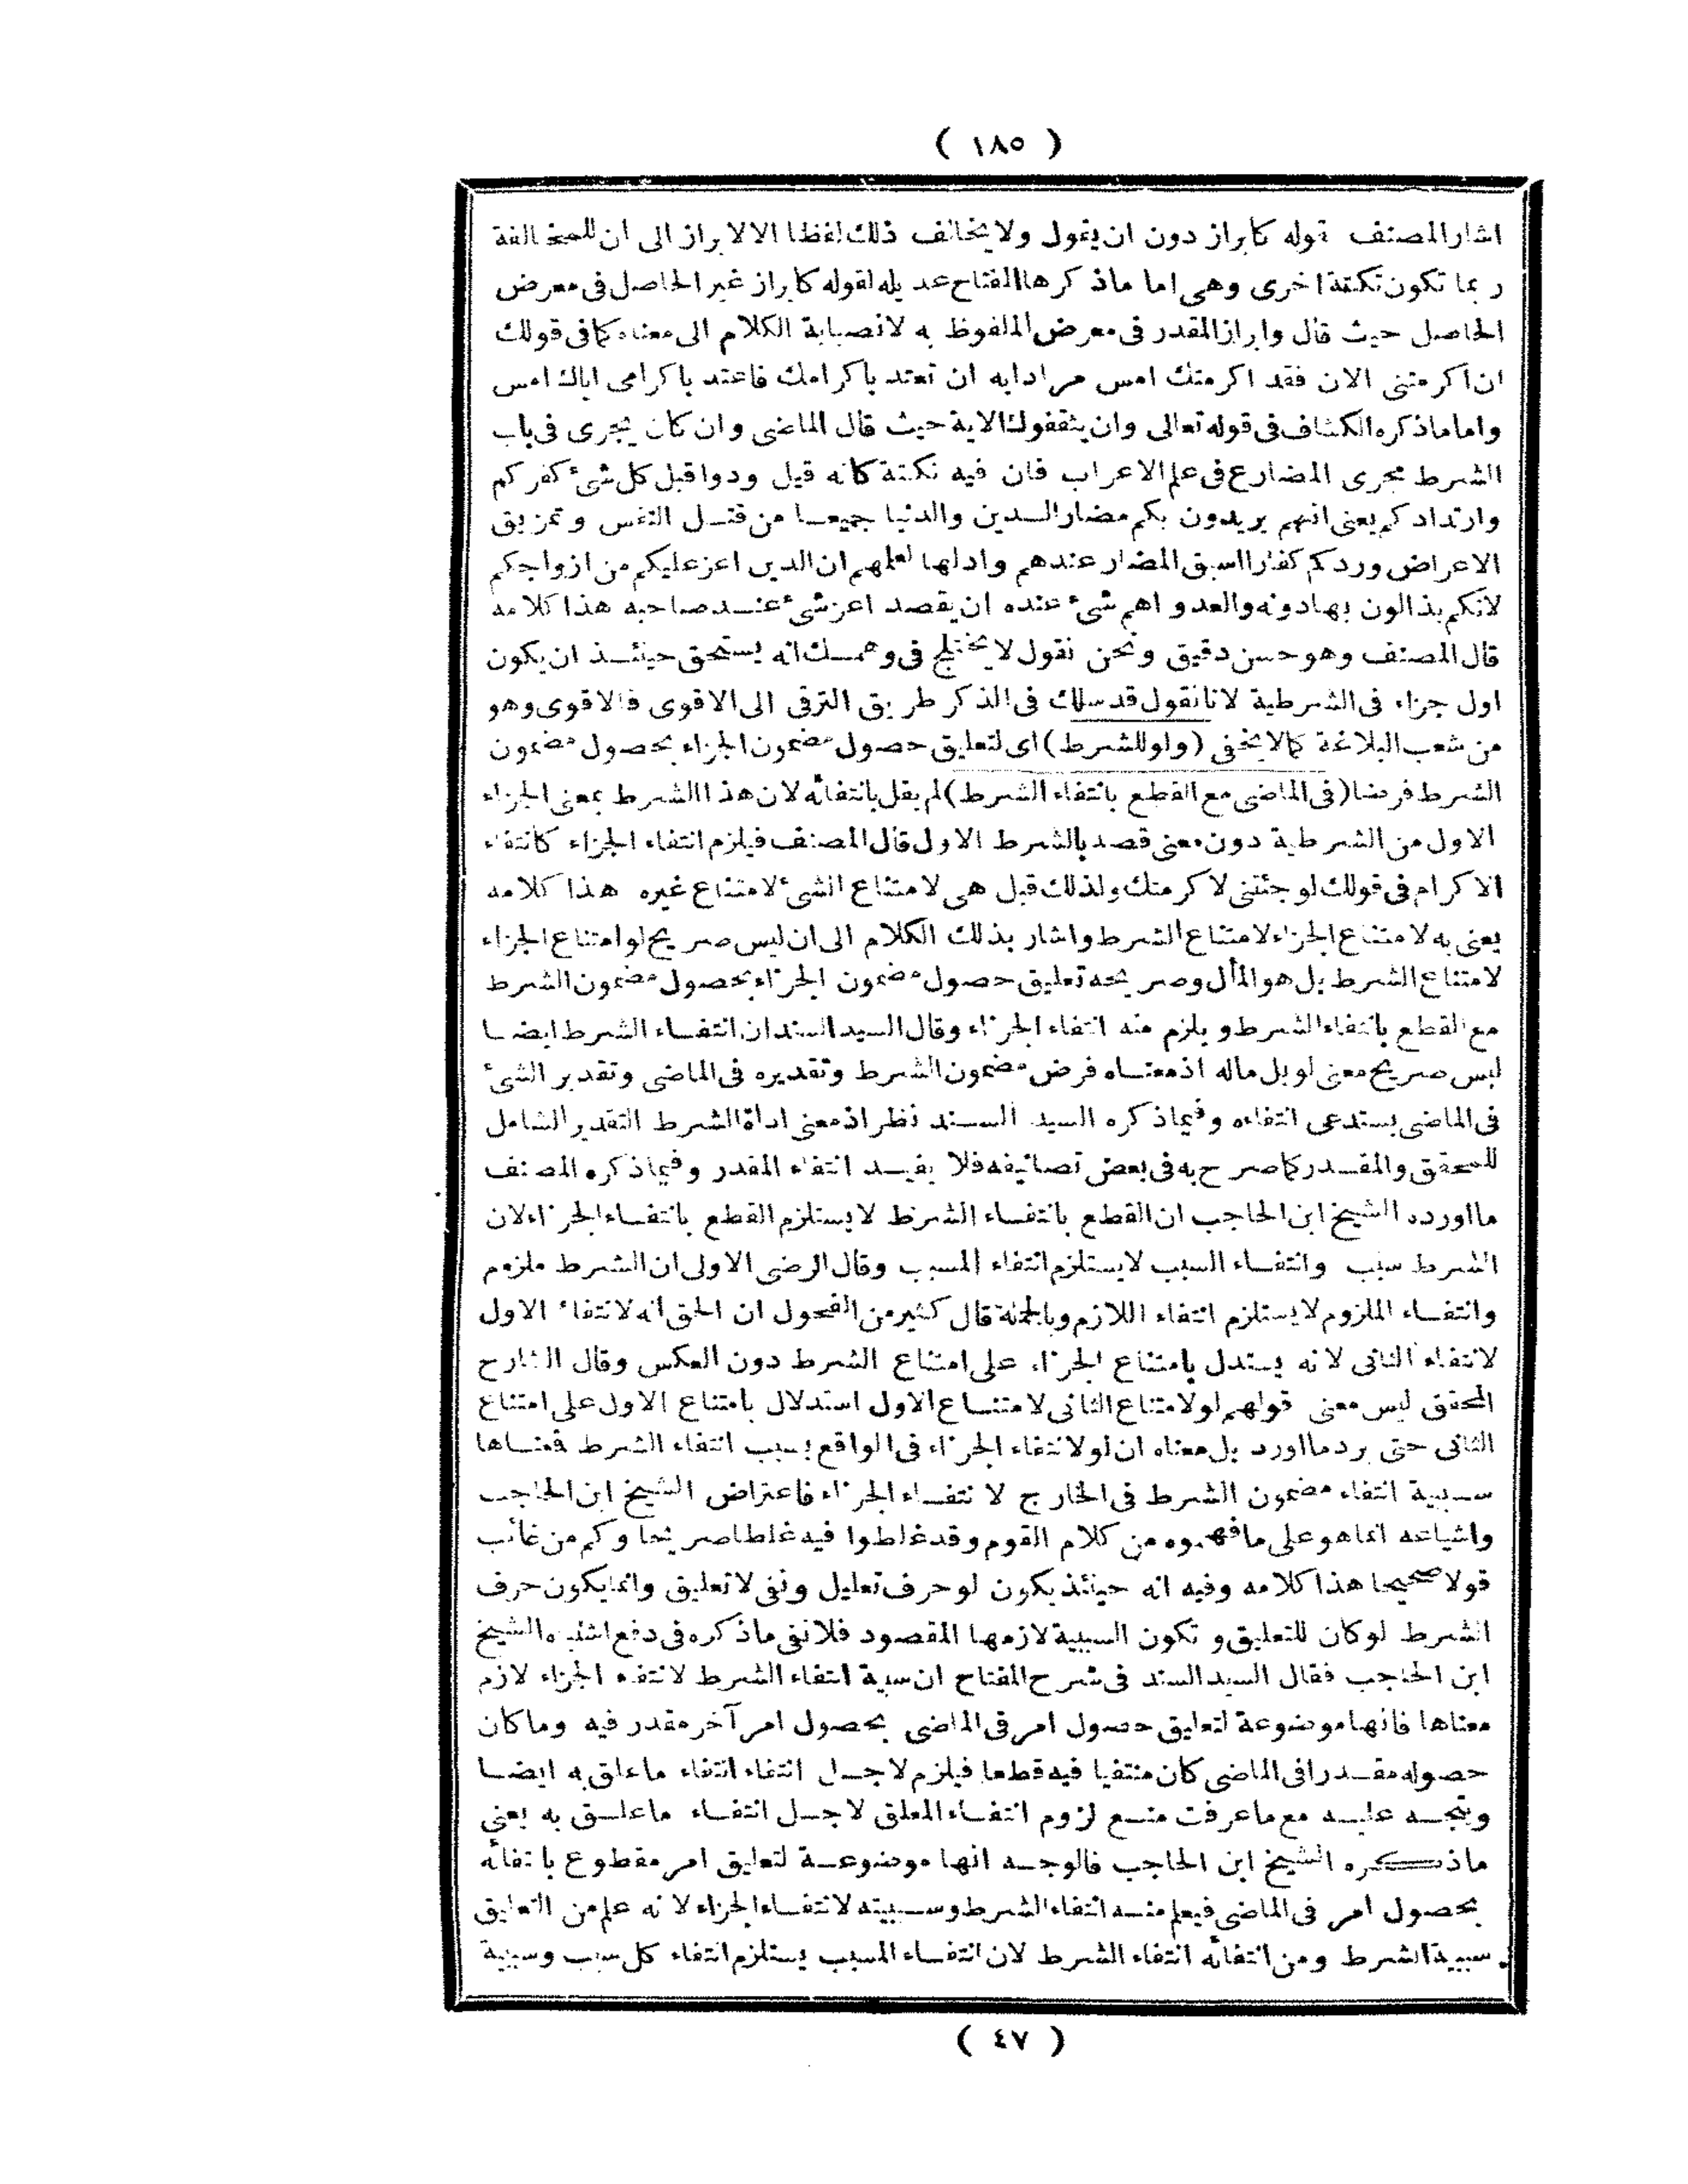 ( ١٨٥ )
اشار المصنف بقوله كابراز دون ان يقول ولا يخالف ذلك لفظا الا لابراز الى ان للمخالفة
ربما تكون نكتة اخرى وهى اما ماذكرها المفتاح عديله لقوله كابراز غير الحاصل فى معرض
الحاصل حيث قال وابراز المقدر فى معرض الملفوظ به لانصبابة الكلام الى معناه كما فى قولك
ان اكرمتنى الان فقد اكرمتك امس مرادا به ان تعتد باكرامك فاعتد باكرامى اياك امس
واما ماذكره الكشاف فى قوله تعالى وان يثقفوكم الاية حيث قال الماضى وان كان يجرى فى باب
الشرط مجرى المضارع فى علم الاعراب فان فيه نكتة كانه قيل ودوا قبل كل شئ كفركم
وارتدادكم يعنى انهم يريدون بكم مضار الدين والدنيا جميعا من قتل النفس وتمزيق
الاعراض وردكم كفارا اسبق المضار عندهم وادلها لعلمهم ان الدين اعز عليكم من ازواجكم
لانكم بذالون بها دونه والعدو اهم شئ عنده ان يقصد اعز شئ عند صاحبه هذا كلامه
قال المصنف وهو حسن دقيق ونحن نقول لا يختلج فى وهمك انه يستحق حينئذ ان يكون
اول جزاء فى الشرطية لانا نقول قد سلك فى الذكر طريق الترقى الى الاقوى فالاقوى وهو
من شعب البلاغة كما لا يخفى (ولو للشرط) اى لتعليق حصول مضمون الجزاء بحصول مضمون
الشرط فرضا (فى الماضى مع القطع بانتفاء الشرط) لم يقل بانتفائه لان هذا الشرط بمعنى الجزاء
الاول من الشرطية دون معنى قصد بالشرط الاول قال المصنف فيلزم انتفاء الجزاء كانتفاء
الاكرام فى قولك لو جئتنى لاكرمتك ولذلك قيل هى لامتناع الشئ لامتناع غيره هذا كلامه
يعنى به لامتناع الجزاء لامتناع الشرط واشار بذلك الكلام الى ان ليس صريح لو امتناع الجزاء
لامتناع الشرط بل هو المأل وصريحه تعليق حصول مضمون الجزاء بحصول مضمون الشرط
مع القطع بانتفاء الشرط ويلزم منه انتفاء الجزاء وقال السيد السند ان انتفاء الشرط ايضا
ليس صريح معنى لو بل ماله اذ معناه فرض مضمون الشرط وتقديره فى الماضى وتقدير الشئ
فى الماضى يستدعى انتفاءه وفيما ذكره السيد السند نظر اذ معنى اداة الشرط التقدير الشامل
للمحقق والمقدر كما صرح به فى بعض تصانيفه فلا يفيد انتفاء المقدر وفيما ذكره المصنف
ما اورده الشيخ ابن الحاجب ان القطع بانتفاء الشرط لا يستلزم القطع بانتفاء الجزاء لان
الشرط سبب وانتفاء السبب لا يستلزم انتفاء المسبب وقال الرضى الاولى ان الشرط ملزوم
وانتفاء الملزوم لا يستلزم انتفاء اللازم وبالجملة قال كثير من الفحول ان الحق انه لانتفاء الاول
لانتفاء الثانى لانه يستدل بامتناع الجزاء على امتناع الشرط دون العكس وقال الشارح
المحقق ليس معنى قولهم لو لامتناع الثانى لامتناع الاول استدلال بامتناع الاول على امتناع
الثانى حتى يرد ما اورد بل معناه ان لو لانتفاء الجزاء فى الواقع بسبب انتفاء الشرط فمعناها
سببية انتفاء مضمون الشرط فى الخارج لانتفاء الجزاء فاعتراض الشيخ ابن الحاجب
واشياعه انما هو على ما فهموه من كلام القوم وقد غلطوا فيه غلطا صريحا وكم من عائب
قولا صحيحا هذا كلامه وفيه انه حينئذ يكون لو حرف تعليل ونفى لا تعليق وانما يكون حرف
الشرط لو كان للتعليق وتكون السببية لازمها المقصود فلا نفى ما ذكره فى دفع اشتباه الشيخ
ابن الحاجب فقال السيد السند فى شرح المفتاح ان سببية انتفاء الشرط لانتفاء الجزاء لازم
معناها فانها موضوعة لتعليق حصول امر فى الماضى بحصول امر آخر مقدر فيه وما كان
حصوله مقدرا فى الماضى كان منتفيا فيه قطعا فيلزم لاجل انتفاء انتفاء ما علق به ايضا
ويتجه عليه مع ما عرفت منع لزوم انتفاء المعلق لاجل انتفاء ما علق به يعنى
ماذكره الشيخ ابن الحاجب فالوجه انها موضوعة لتعليق امر مقطوع بانتفائه
بحصول امر فى الماضى فيعلم منه انتفاء الشرط وسببيته لانتفاء الجزاء لانه علم من التعليق
سببية الشرط ومن انتفائه انتفاء الشرط لان انتفاء المسبب يستلزم انتفاء كل سبب وسببية
( ٤٧ )